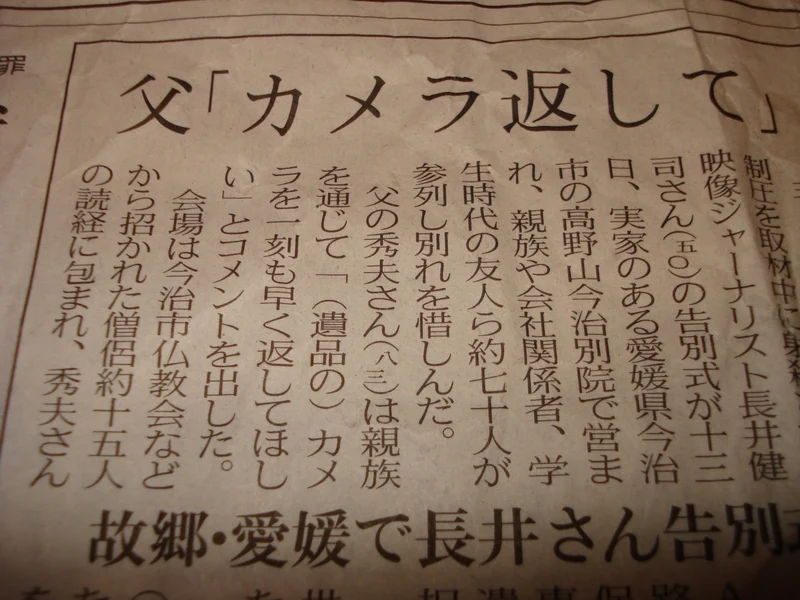 父「カメラ返して」
制圧を取材中に射殺
映像ジャーナリスト長井健
司さん(五〇)の告別式が十三
日、実家のある愛媛県今治
市の高野山今治別院で営ま
れ、親族や会社関係者、学
生時代の友人ら約七十人が
参列し別れを惜しんだ。
父の秀夫さん(八三)は親族
を通じて「(遺品の)カメ
ラを一刻も早く返してほし
い」とコメントを出した。
会場は今治市仏教会など
から招かれた僧侶約十五人
の読経に包まれ、秀夫さん
故郷・愛媛で長井さん告別式
罪